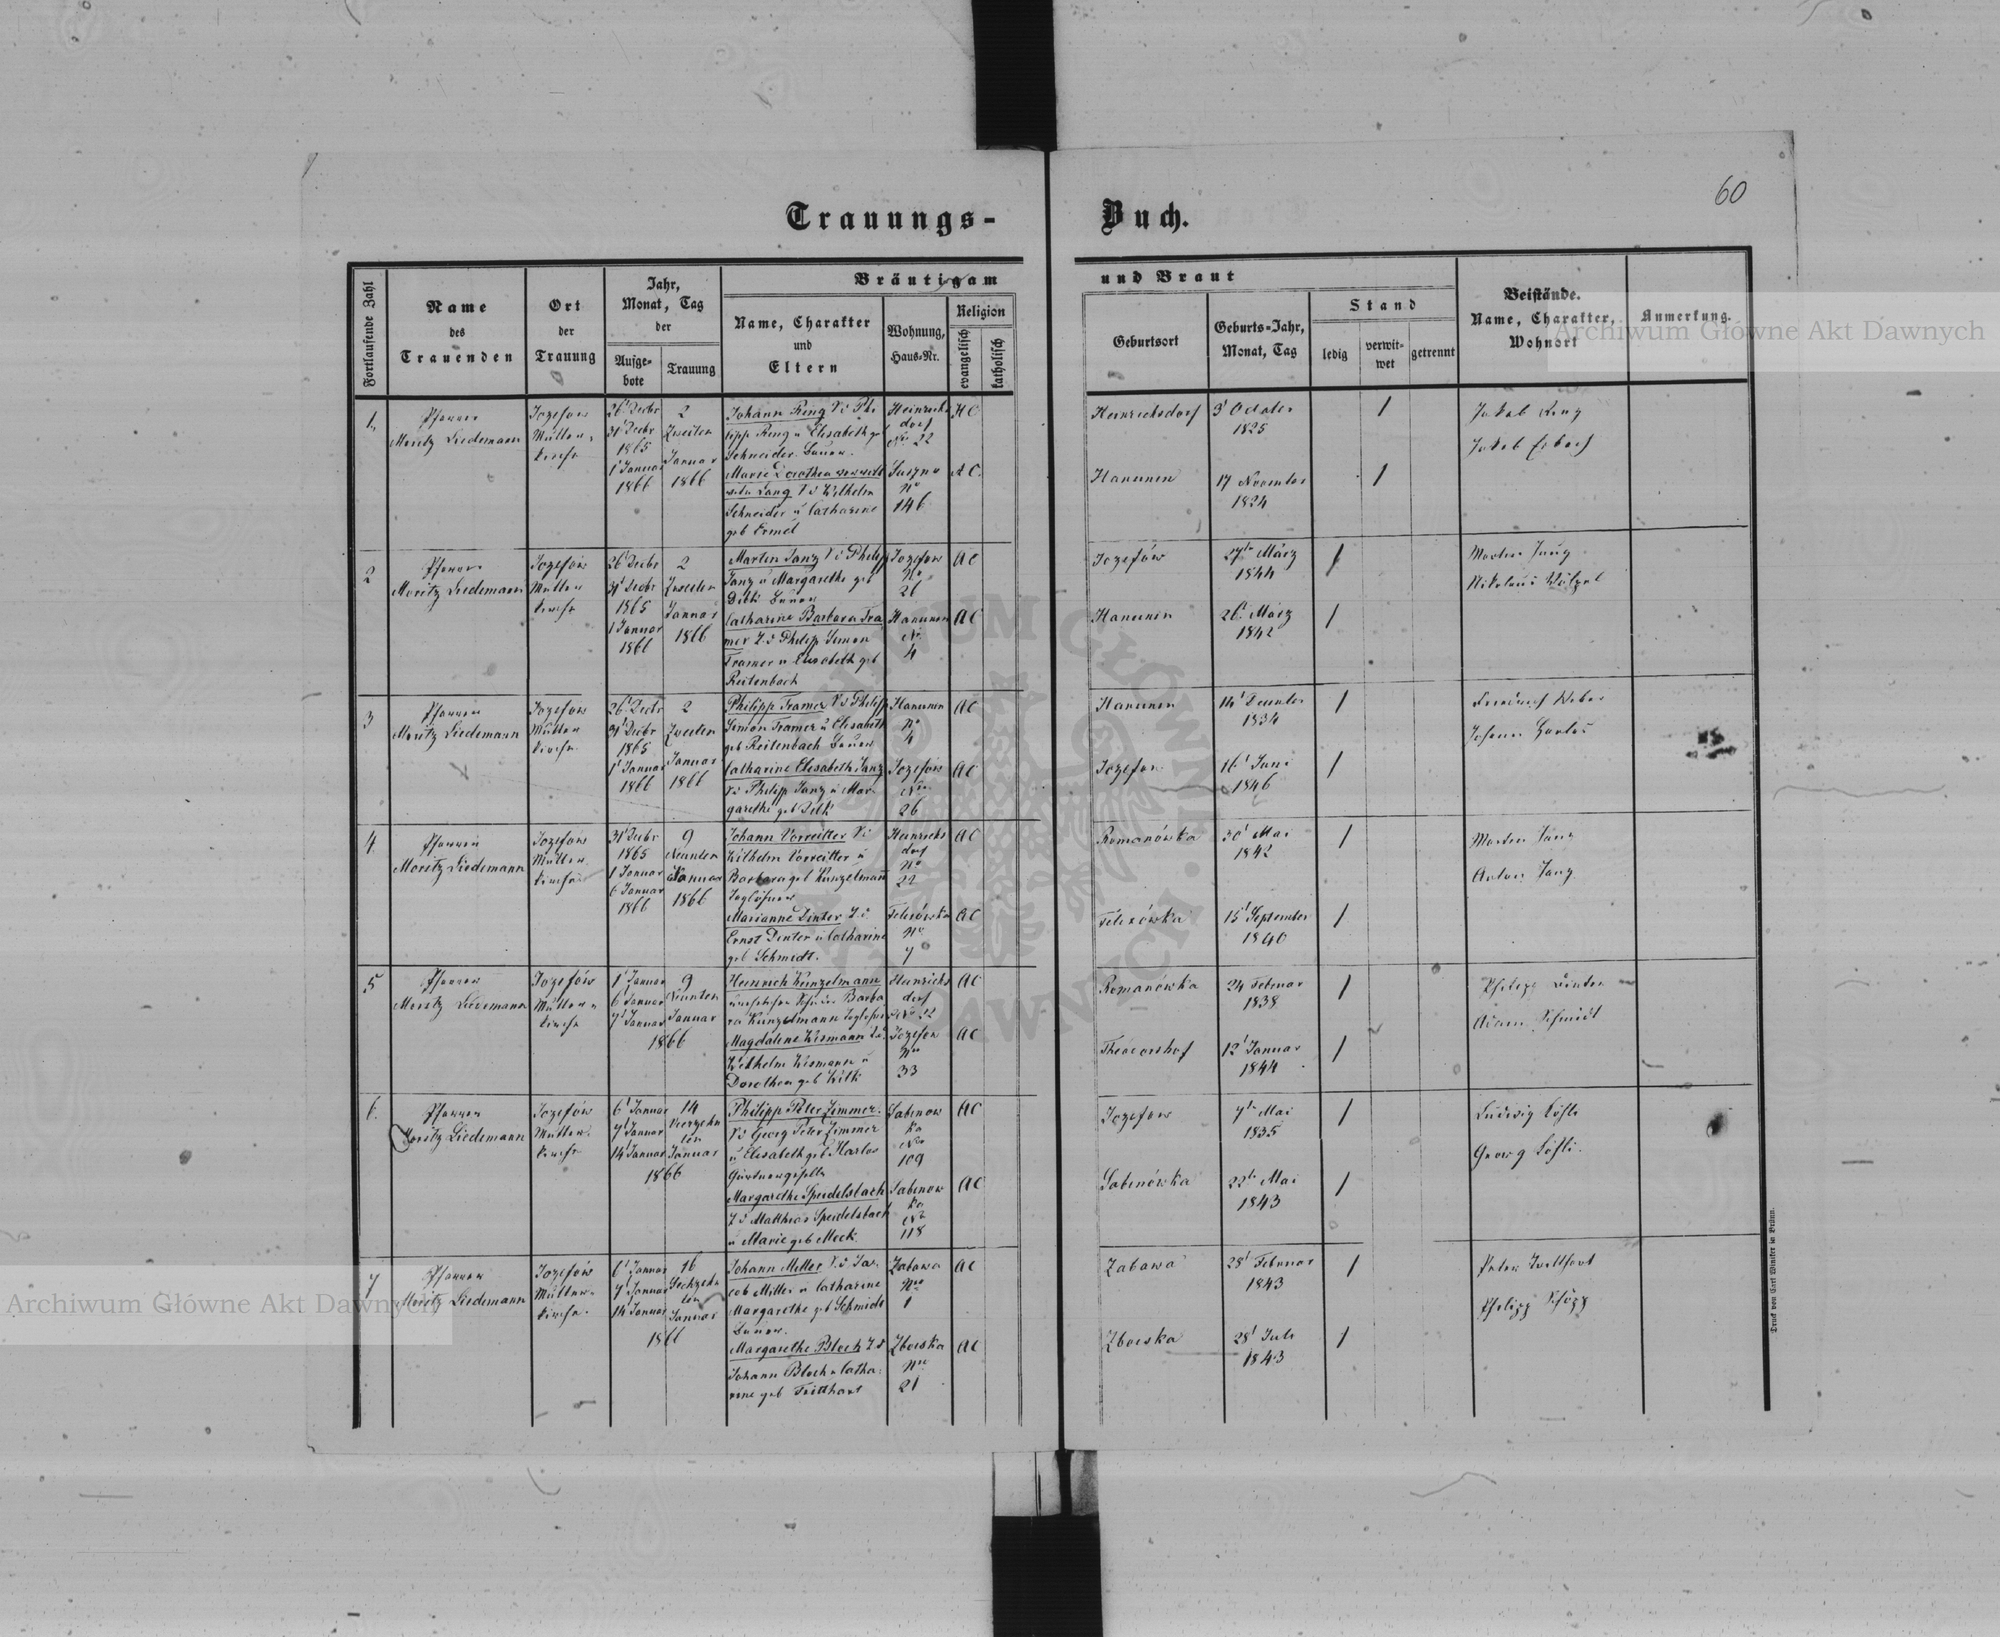 60
Trauungs-Buch.
Fortlaufende Zahl
Name
des
Trauenden
Ort
der
Trauung
Jahr,
Monat, Tag
der
Aufge-
bote
Trauung
Bräutigam und Braut
Name, Charakter
und
Eltern
Wohnung,
Haus-Nr.
Religion
evangelisch
katholisch
Geburtsort
Geburts-Jahr,
Monat, Tag
Stand
ledig
verwit-
wet
getrennt
Beistände.
Name, Charakter,
Wohnort
Anmerkung.
1.
Pfarrer
Moritz Liedemann
Jozefow
Mutter-
kirche
26' Decbr
31' Decbr
1865
1' Januar
1866
2
Zweiten
Januar
1866
Johann Ring V: Phi
lipp Ring u Elisabeth ge
Schneider. Bauer.
Marie Dorothea verwitt
wete Lang T: v Wilhelm
Schneider u Catharine
geb Ermel
Heinrichs
dorf
No 22
Suszno
No
146
HC
AC.
Heinrichsdorf
3' October
1825
Hanunin
17 November
1824
Jakob Ring
2
Pfarrer
Moritz Liedemann
Jozefów
Mutter
kirche
26' Decbr
31' Decbr
1865
1 Januar
1866
2
Zweiten
Januar
1866
Martin Janz V: Philipp
Janz u Margarethe geb
Bauer
Catharine Barbara Tra
mer T: v Philipp Simon
Tramer u Elisabeth geb
Reitenbach
Jozefow
No
26
Hanunin
No
4
AC
AC
Jozefów
27ten März
1844
Hanunin
26t März
1842
3
Pfarrer
Moritz Liedemann
Jozefow
Mutter
kirche
26' Decbr
31' Decbr
1865
1' Januar
1866
2
Zweiten
Januar
1866
Philipp Tramer V: Philipp
Simon Tramer u Elisabeth
geb Reitenbach Bauer
Catharine Elisabeth Janz
V: Philipp Janz u Mar-
garethe geb
Hanunin
No
4
Jozefów
No
26
AC
AC
Hanunin
14' December
1834
Jozefow
16' Juni
1846
Friedrich Weber
Johann Harlos
4
Pfarrer
Moritz Liedemann
Jozefów
Mutter
kirche
31' Decbr
1865
1 Januar
6 Januar
1866
9
Neunten
Januar
1866
Johann Vorreitter V:
Wilhelm Vorreitter u
Barbara geb Kunzelmann
Marianne Dinter T: v
Ernst Dinter u Catharine
geb Schmidt.
Heinrichs
dorf
No
22
No
7
AC
AC
Romanówka
30' Mai
1842
15' September
1840
Martin Janz
Anton Janz
5
Pfarrer
Moritz Liedemann
Jozefów
Mutter-
kirche
1' Januar
6 Januar
7' Januar
9
Neunten
Januar
1866
Heinrich Kunzelmann
Barba
ra Kunzelmann
Magdaline Wismann T: v
Wilhelm Wismann u
Dorothea geb Wilk
Heinrichs
dorf
No 22
Jozefow
No
33
AC
AC
Romanówka
24 Februar
1838
Theodorshof
12' Januar
1844
Philipp Dinter
Adam Schmidt
6.
Pfarrer
Moritz Liedemann
Jozefów
Mutter-
kirche
6' Januar
7' Januar
14 Januar
14
Vierzehn
ten
Januar
1866
Philipp Peter Zimmer.
V: Georg Peter Zimmer
u Elisabeth geb Harlos
Margarethe Speidelsbach
T: v Matthias Speidelsbach
u Marie geb Meck.
Sabinow
ka
No
109
Sabinow
ka
No
118
AC
AC
Jozefow
7ten Mai
1835
Sabinówka
22ten Mai
1843
7
Pfarrer
Moritz Liedemann
Jozefów
Mutter-
kirche.
6' Januar
7' Januar
14 Januar
16
Sechzehn
ten
Januar
1866
Johann Miller V: v Ja-
cob Miller u Catharine
Margarethe geb Schmidt
Bauer.
Margarethe Bloch T: v
Johann Bloch u Catha-
rine geb Tritthart
Zabawa
No
1
Zboiska
No
21
AC
AC
Zabawa
28' Februar
1843
Zboiska
28' Juli
1843
Philipp Schöpp
Druck von Carl Winiker in Brünn.
Archiwum Główne Akt Dawnych
Archiwum Główne Akt Dawnych
ARCHIWUM GŁÓWNE AKT DAWNYCH